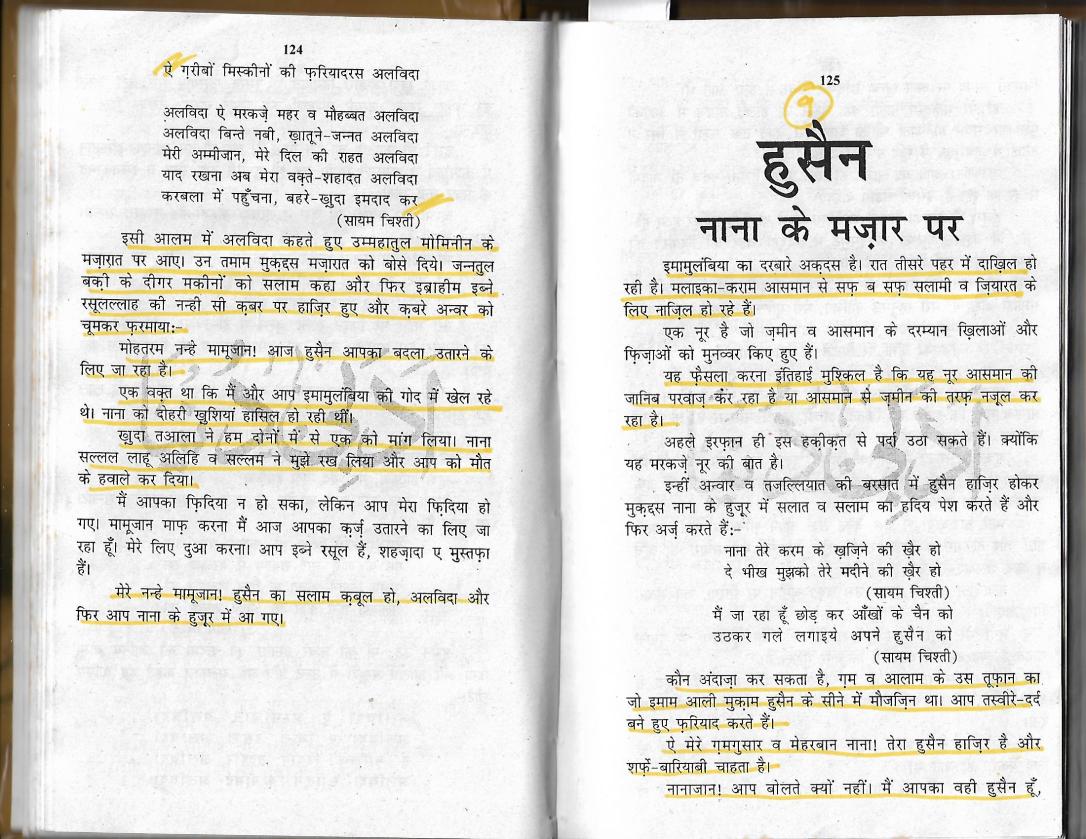 124
ऐ ग़रीबों मिस्कीनों की फ़रियादरस अलविदा
अलविदा ऐ मरकज़े महर व मौहब्बत अलविदा
अलविदा बिन्ते नबी, ख़ातूने-जन्नत अलविदा
मेरी अम्मीजान, मेरे दिल की राहत अलविदा
याद रखना अब मेरा वक़्ते-शहादत अलविदा
करबला में पहुँचना, बहरे-ख़ुदा इमदाद कर
(सायम चिश्ती)
इसी आलम में अलविदा कहते हुए उम्महातुल मोमिनीन के
मज़ारात पर आए। उन तमाम मुकद्दस मज़ारात को बोसे दिये। जन्नतुल
बक़ी के दीगर मकीनों को सलाम कहा और फिर इब्राहीम इब्ने
रसूलल्लाह की नन्ही सी क़बर पर हाज़िर हुए और क़बरे अन्वर को
चूमकर फ़रमाया:-
मोहतरम नन्हे मामूजान! आज हुसैन आपका बदला उतारने के
लिए जा रहा है।
एक वक्त था कि मैं और आप इमामुलंबिया की गोद में खेल रहे
थे। नाना को दोहरी खुशियां हासिल हो रही थीं।
ख़ुदा तआला ने हम दोनों में से एक को मांग लिया। नाना
सल्लल लाहू अलिहि व सल्लम ने मुझे रख लिया और आप को मौत
के हवाले कर दिया।
मैं आपका फ़िदिया न हो सका, लेकिन आप मेरा फ़िदिया हो
गए। मामूजान माफ़ करना मैं आज आपका क़र्ज़ उतारने का लिए जा
रहा हूँ। मेरे लिए दुआ करना। आप इब्ने रसूल हैं, शहज़ादा ए मुस्तफ़ा
हैं।
मेरे नन्हे मामूजान! हुसैन का सलाम क़बूल हो, अलविदा और
फिर आप नाना के हुजूर में आ गए।
125
९
हुसैन
नाना के मज़ार पर
इमामुलंबिया का दरबारे अक़दस है। रात तीसरे पहर में दाख़िल हो
रही है। मलाइका-कराम आसमान से सफ़ ब सफ़ सलामी व ज़ियारत के
लिए नाज़िल हो रहे हैं।
एक नूर है जो ज़मीन व आसमान के दरम्यान ख़िलाओं और
फ़िज़ाओं को मुनव्वर किए हुए हैं।
यह फ़ैसला करना इंतिहाई मुश्किल है कि यह नूर आसमान की
जानिब परवाज़ कर रहा है या आसमान से ज़मीन की तरफ़ नजूल कर
रहा है।
अहले इरफ़ान ही इस हक़ीक़त से पर्दा उठा सकते हैं। क्योंकि
यह मरकज़े नूर की बात है।
इन्हीं अन्वार व तजल्लियात की बरसात में हुसैन हाज़िर होकर
मुकद्दस नाना के हुजूर में सलात व सलाम का हदिय पेश करते हैं और
फिर अर्ज़ करते हैं:-
नाना तेरे करम के ख़ज़िने की ख़ैर हो
दे भीख मुझको तेरे मदीने की ख़ैर हो
(सायम चिश्ती)
मैं जा रहा हूँ छोड़ कर आँखों के चैन को
उठकर गले लगाइये अपने हुसैन को
(सायम चिश्ती)
कौन अंदाज़ा कर सकता है, ग़म व आलाम के उस तूफ़ान का
जो इमाम आली मुक़ाम हुसैन के सीने में मौजज़िन था। आप तस्वीरे-दर्द
बने हुए फ़रियाद करते हैं।
ऐ मेरे ग़मगुसार व मेहरबान नाना! तेरा हुसैन हाज़िर है और
शर्फ़े-बारियाबी चाहता है।
नानाजान! आप बोलते क्यों नहीं। मैं आपका वही हुसैन हूँ,